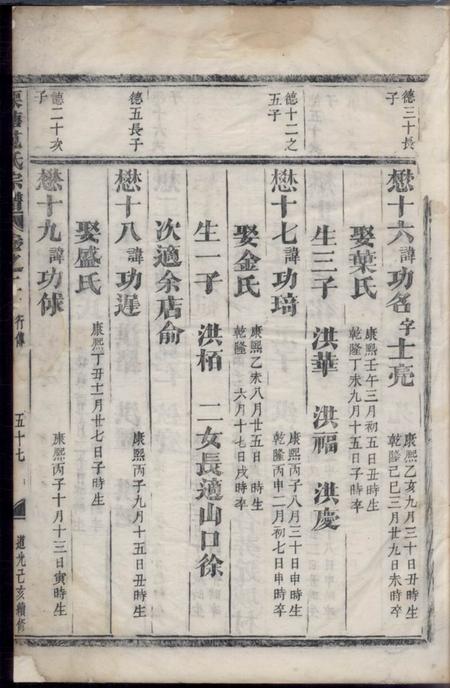 德三十長
子
懋十六諱功名字士亮
康熙乙亥九月三十日丑時生
乾隆己巳三月廿九日未時卒
娶葉氏
康熙壬午三月初五日丑時生
乾隆丁未九月十五日子時卒
生三子 洪華 洪福 洪慶
德十二之
五子
懋十七諱功琦
康熙丙子八月三十日申時生
乾隆丙申二月初七日申時卒
娶金氏
康熙乙未八月廿五日 時生
乾隆 六月十七日戌時卒
生一子 洪栢 二女長適山口徐
次適余店俞
德五長子
懋十八諱功遅
康熙丙子九月十五日丑時生
娶盛氏
康熙丁丑十一月廿七日子時生
德二十次
子
懋十九諱功俅
康熙丙子十月十三日寅時生
氏宗譜卷之 行傳 五十七 道光己亥續修